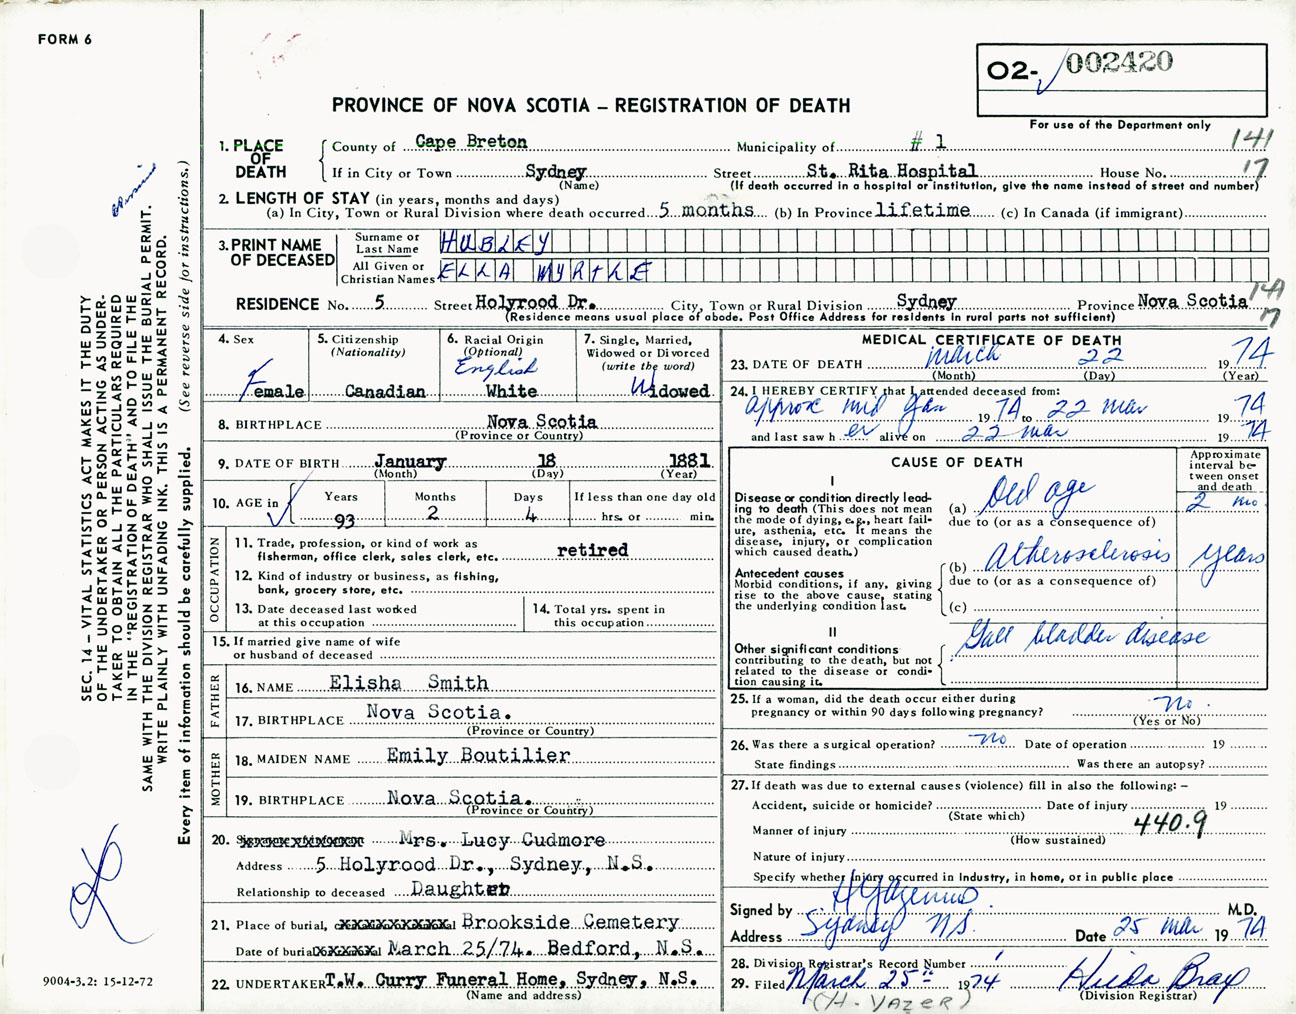 FORM 6
O2- 002420
PROVINCE OF NOVA SCOTIA – REGISTRATION OF DEATH
For use of the Department only
1. PLACE OF DEATH
County of Cape Breton Municipality of # 1 141
If in City or Town Sydney Street St. Rita Hospital House No. 17
(Name) (If death occurred in a hospital or institution, give the name instead of street and number)
2. LENGTH OF STAY (in years, months and days)
(a) In City, Town or Rural Division where death occurred 5 months (b) In Province lifetime (c) In Canada (if immigrant)
3. PRINT NAME OF DECEASED
Surname or Last Name HUBLEY
All Given or Christian Names ELLA MYRTLE
RESIDENCE No. 5 Street Holyrood Dr. City, Town or Rural Division Sydney Province Nova Scotia 141
(Residence means usual place of abode. Post Office Address for residents in rural parts not sufficient) 17
4. Sex
Female
5. Citizenship
(Nationality)
Canadian
6. Racial Origin
(Optional)
English
White
7. Single, Married,
Widowed or Divorced
(write the word)
Widowed
8. BIRTHPLACE Nova Scotia
(Province or Country)
9. DATE OF BIRTH January 18 1881
(Month) (Day) (Year)
10. AGE in
Years Months Days If less than one day old
93 2 4 hrs. or min.
OCCUPATION
11. Trade, profession, or kind of work as
fisherman, office clerk, sales clerk, etc. retired
12. Kind of industry or business, as fishing,
bank, grocery store, etc.
13. Date deceased last worked
at this occupation
14. Total yrs. spent in
this occupation
15. If married give name of wife
or husband of deceased
FATHER
16. NAME Elisha Smith
17. BIRTHPLACE Nova Scotia.
(Province or Country)
MOTHER
18. MAIDEN NAME Emily Boutilier
19. BIRTHPLACE Nova Scotia.
(Province or Country)
20. Mrs. Lucy Cudmore
Address 5 Holyrood Dr., Sydney, N.S.
Relationship to deceased Daughter
21. Place of burial, Brookside Cemetery
Date of burial March 25/74. Bedford, N.S.
22. UNDERTAKER T.W. Curry Funeral Home, Sydney, N.S.
(Name and address)
MEDICAL CERTIFICATE OF DEATH
23. DATE OF DEATH March 22 19 74
(Month) (Day) (Year)
24. I HEREBY CERTIFY that I attended deceased from:
approx mid Jan 19 74 to 22 mar 19 74
and last saw h er alive on 22 mar 19 74
CAUSE OF DEATH
Approximate interval between onset and death
I
Disease or condition directly leading to death (This does not mean the mode of dying, e.g., heart failure, asthenia, etc. It means the disease, injury, or complication which caused death.)
(a) Old age 2 mo
due to (or as a consequence of)
Antecedent causes
Morbid conditions, if any, giving rise to the above cause, stating the underlying condition last.
(b) Atherosclerosis years
due to (or as a consequence of)
(c)
II
Other significant conditions
contributing to the death, but not related to the disease or condition causing it.
Gall bladder disease
25. If a woman, did the death occur either during
pregnancy or within 90 days following pregnancy? no.
(Yes or No)
26. Was there a surgical operation? no Date of operation 19
State findings Was there an autopsy?
27. If death was due to external causes (violence) fill in also the following: –
Accident, suicide or homicide? Date of injury 19
(State which)
Manner of injury 440.9
(How sustained)
Nature of injury
Specify whether injury occurred in industry, in home, or in public place
Signed by M.D.
Address Sydney NS. Date 25 mar 19 74
28. Division Registrar's Record Number
29. Filed March 25th 1974 Hilda Bray
(H. VAZER) (Division Registrar)
SEC. 14 – VITAL STATISTICS ACT MAKES IT THE DUTY
OF THE UNDERTAKER OR PERSON ACTING AS UNDER-
TAKER TO OBTAIN ALL THE PARTICULARS REQUIRED
IN THE "REGISTRATION OF DEATH" AND TO FILE THE
SAME WITH THE DIVISION REGISTRAR WHO SHALL ISSUE THE BURIAL PERMIT.
WRITE PLAINLY WITH UNFADING INK. THIS IS A PERMANENT RECORD.
Every item of information should be carefully supplied. (See reverse side for instructions.)
9004-3.2: 15-12-72